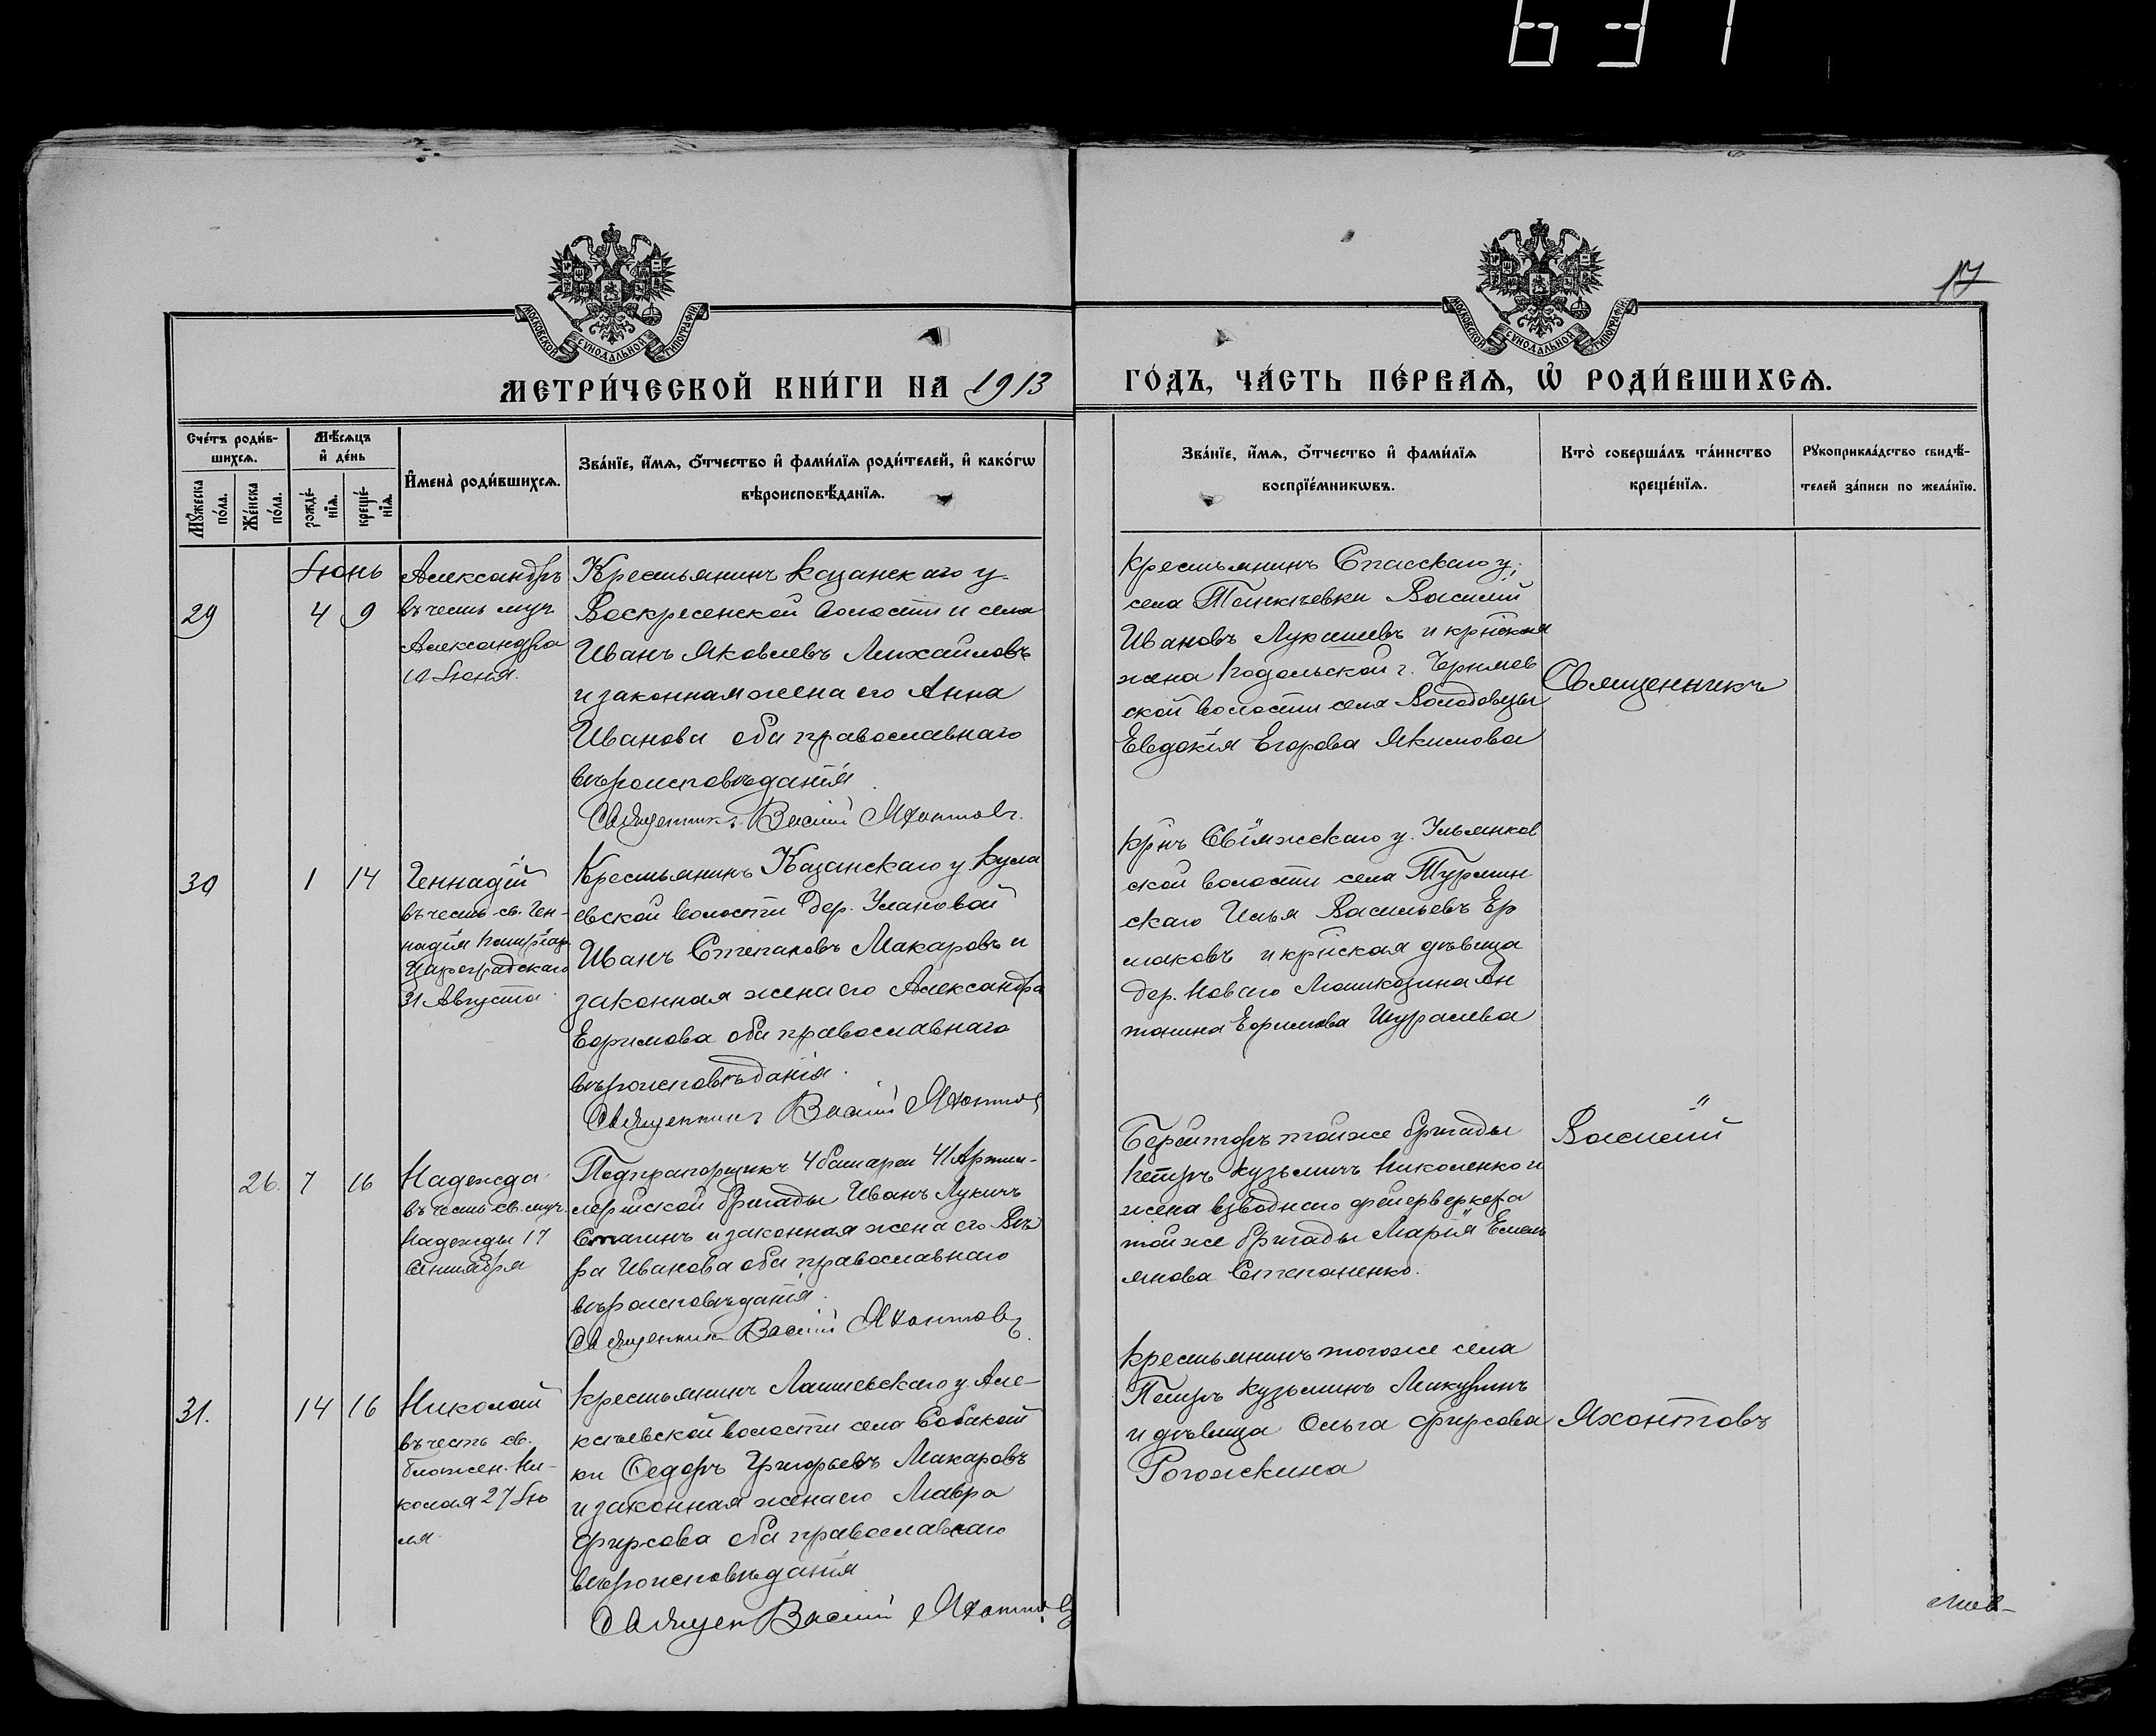 631
17
МОСКОВСКОЙ СѴНОДАЛЬНОЙ ТИПОГРАФІИ
МОСКОВСКОЙ СѴНОДАЛЬНОЙ ТИПОГРАФІИ
МЕТРИ́ЧЕСКОЙ КНИ́ГИ НА 1913
ГО́ДЪ, ЧА́СТЬ ПЕ́РВАѦ, Ѡ҆ РОДИ́ВШИХСѦ.
Сче́тъ роди́в-
шихсѧ.
Мѣ́сѧцъ
и҆ де́нь
Мꙋ́жеска по́ла.
Же́нска по́ла.
рожде́-
нїѧ.
креще́-
нїѧ.
И҆мена̀ роди́вшихсѧ.
Зва́нїе, и҆́мѧ, ѻ҆́тчество и҆ фами́лїѧ роди́телей, и҆ како́гѡ
вѣроисповѣ́данїѧ.
Зва́нїе, и҆́мѧ, ѻ҆́тчество и҆ фами́лїѧ
воспрїе́мникѡвъ.
Кто̀ соверша́лъ та́инство
креще́нїѧ.
Рꙋкоприкла́дство свидѣ́-
телей за́писи по жела́нїю.
Іюнь
29
4 9
Александръ
въ честь муч.
Александра
10 Іюня.
Крестьянинъ Казанскаго у.
Воскресенской волости и села
Иванъ Яковлевъ Михайловъ
и законная жена его Анна
Иванова оба православнаго
вѣроисповѣданія.
Священникъ Василій Яхонтовъ.
Крестьянинъ Спасскаго у.
села Василій
Ивановъ Лукашевъ и крнская
жена Подольской г.
ской волости села
Евдокія Егорова Якимова
Священникъ
30
1 14
Геннадій
въ честь св. Ген-
надія патріар.
Цареградскаго
31 Августа.
Крестьянинъ Казанскаго у. Кула
евской волости дер. Улановой
Иванъ Степановъ Макаровъ и
законная жена его Александра
Ефимова оба православнаго
вѣроисповѣданія.
Священникъ Василій Яхонтов
Крнъ Свіяжскаго у. Ульянков
ской волости села Турмин
скаго Илья Васильевъ Ер
маковъ и крнская дѣвица
дер. Новаго Ан
тонина Ефимова
26. 7 16
Надежда
въ честь св. муч.
Надежды 17
Сентября
Подпрапорщикъ 4 батареи 41 Артил-
лерійской бригады Иванъ Лукичъ
и законная жена его Вѣ
ра Иванова оба православнаго
вѣроисповѣданія.
Священникъ Василій Яхонтовъ
Берейторъ той же бригады
Петръ Кузьмичъ Николенко и
жена взводнаго фейерверкера
той же бригады Марія Емель
янова Степаненко.
Василій
31.
14 16
Николай
въ честь св.
блажен. Ни-
колая 27 Ію
ля.
Крестьянинъ Лаишевскаго у. Але-
ксѣевской волости села
ки Федоръ Григорьевъ Макаровъ
и законная жена его Мавра
Фирсова оба православнаго
вѣроисповѣданія
Священ Василій Яхонтовъ
Крестьянинъ того же села
Петръ Кузьминъ
и дѣвица Ольга Фирсова
Рогожкина
Яхонтовъ